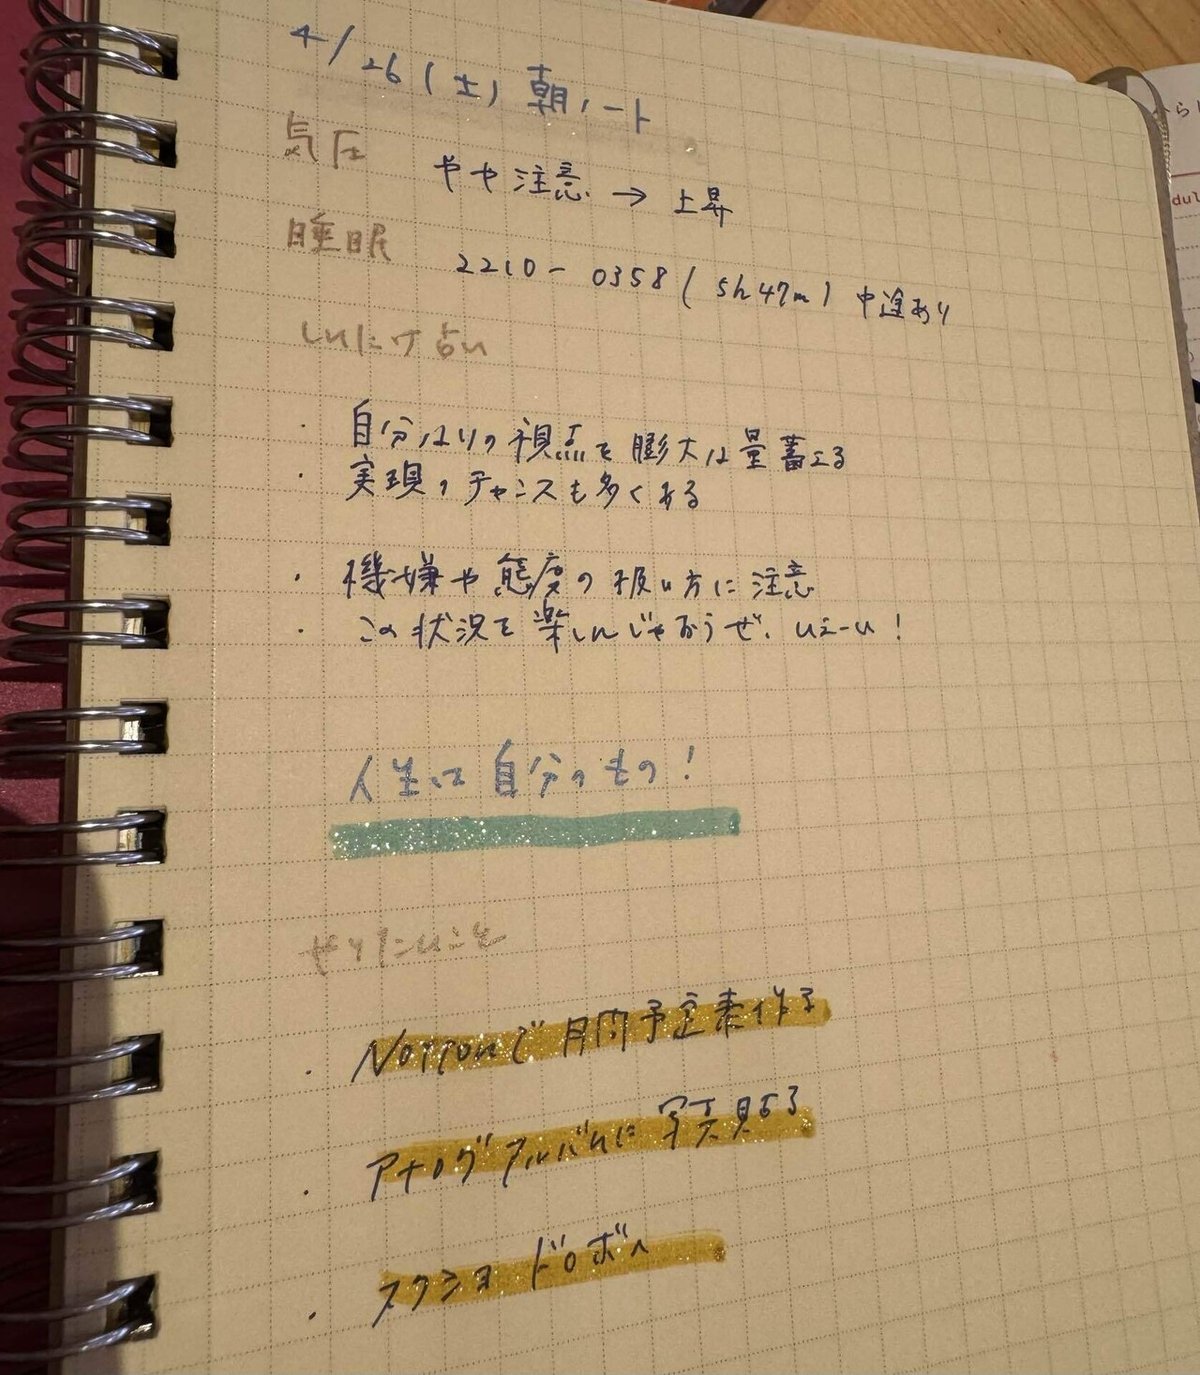 4/26(土) 朝ノート
気圧
やや注意 → 上昇
睡眠
2210 - 0358 (5h47m) 中途あり
しいたけ占い
・自分なりの視点を膨大な量蓄える
・実現のチャンスも多くある
・機嫌や態度の扱い方に注意
・この状況を楽しんじゃおうぜ、いえーい!
人生は自分のもの!
やりたいこと
・Notionで月間予定表作る
・アナログアルバムに写真貼る
・スクショ ドロボへ